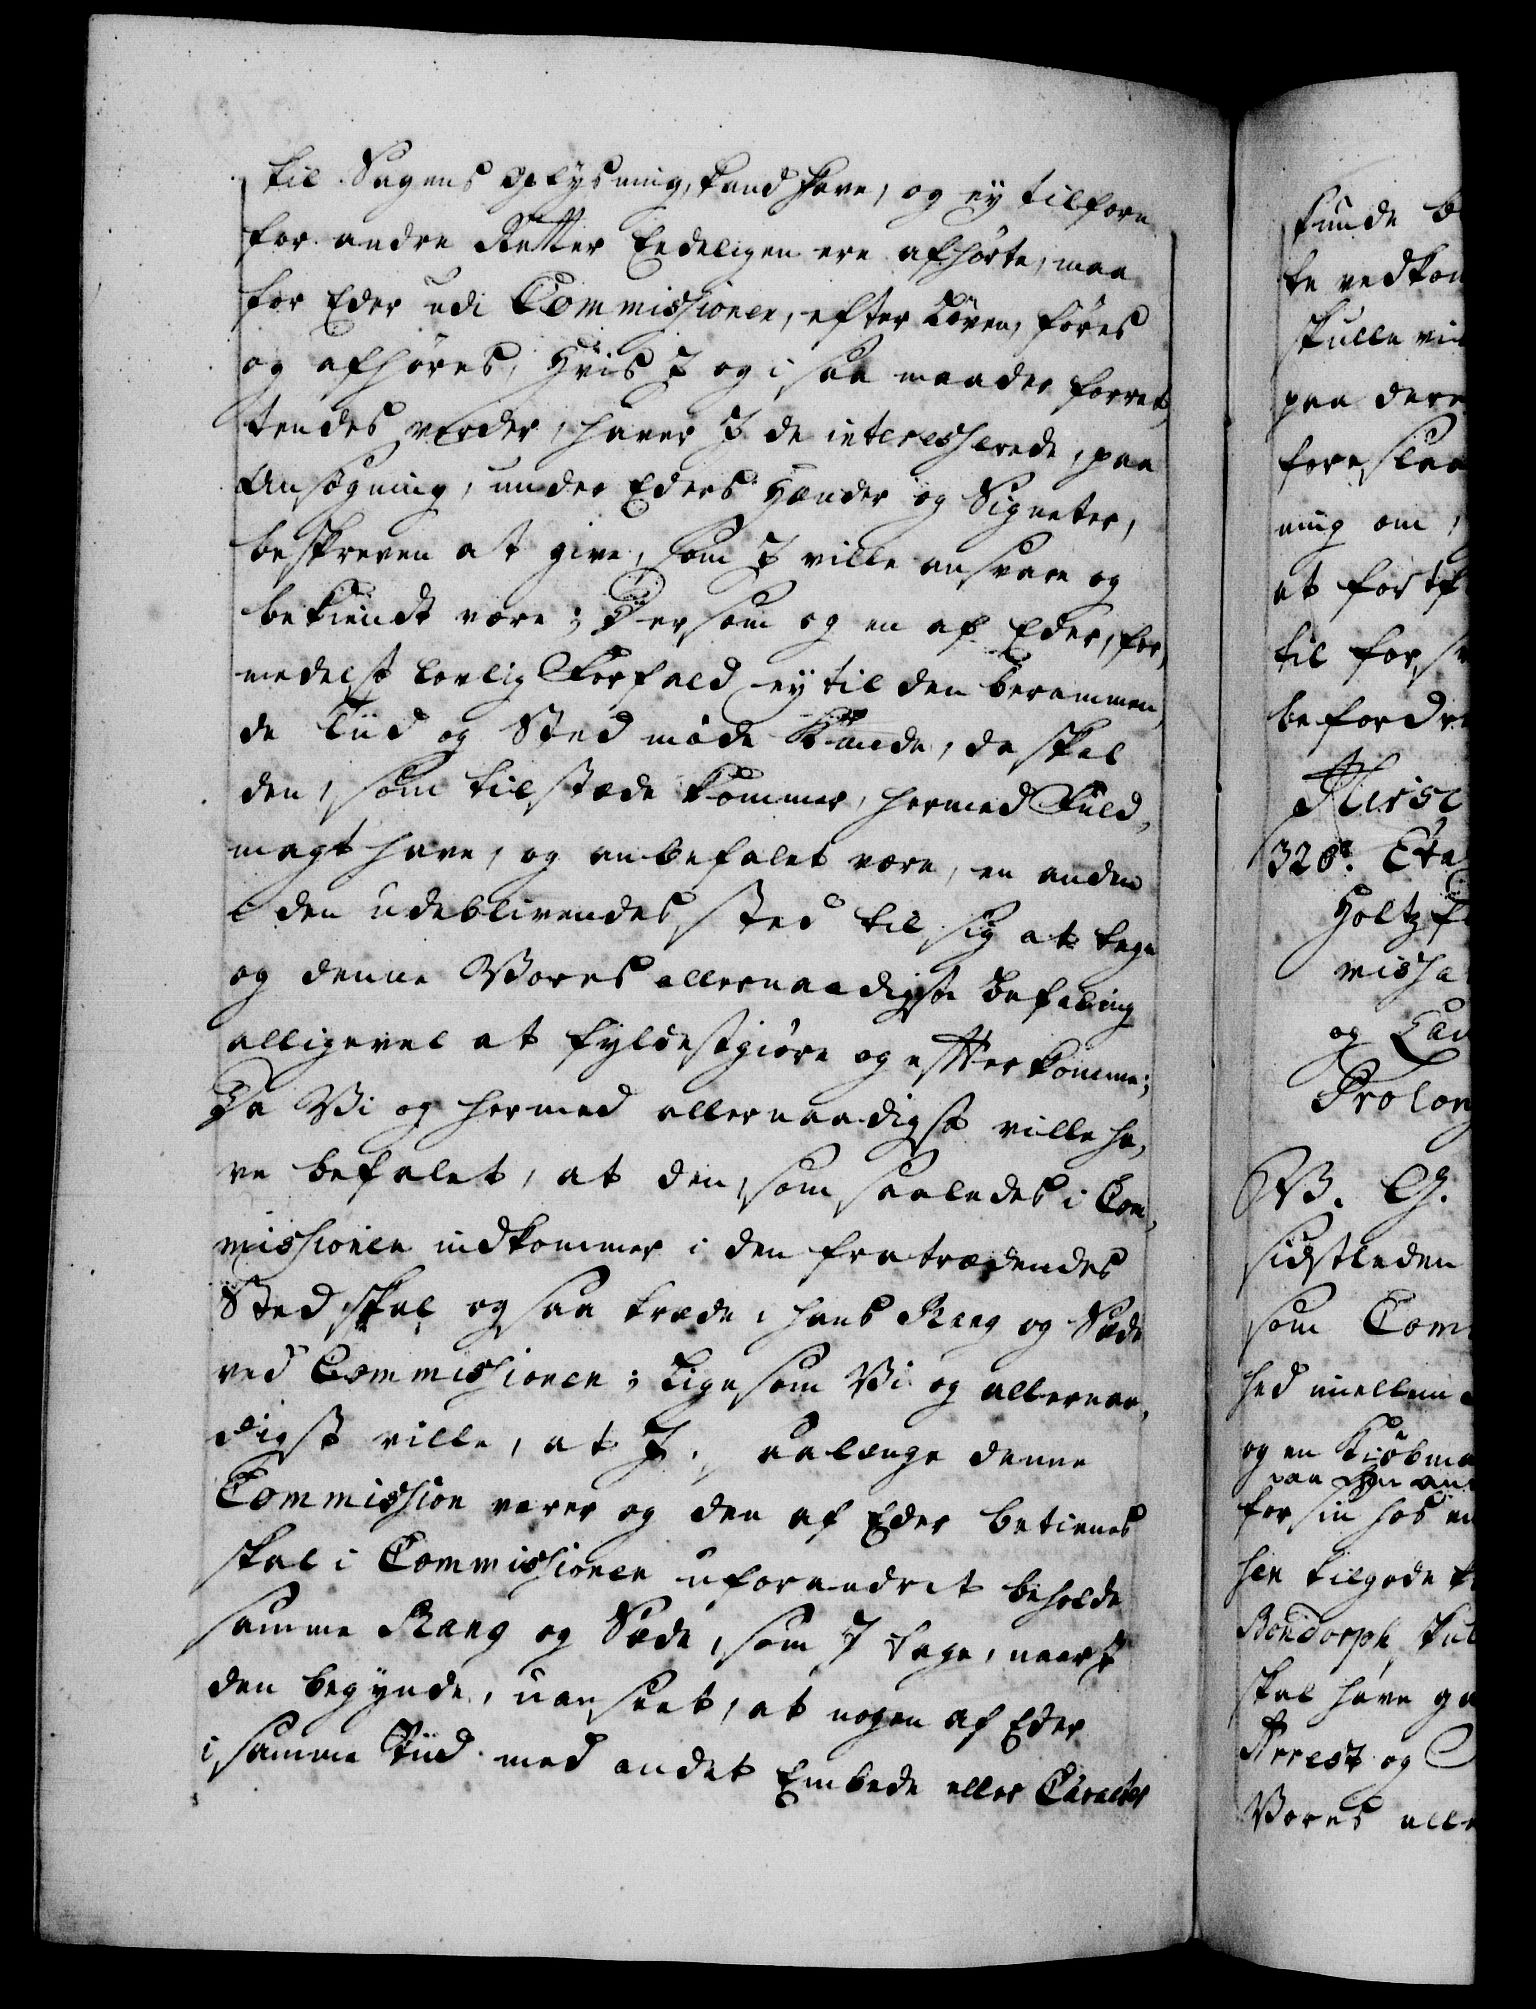 til Sagens Oplysning, kand have, og ey tilforn
for andre Retter Eedeligen ere afhörte, maa
for Eder udi Commissionen, efter Loven, föres
og afhöres; Hvis I og i saa maader forret,
tendes vorder, haver I de interesserede, paa
Ansögning, under Eders Hænder og Signeter,
beskreven at give, som I ville ansvare og
bekiendt være; Dersom og en af Eder, for,
medelst lovlig Forfald ey til den berammen,
de Tiid og Sted möde kunde, da skal
den, som tilstæde kommer, hermed Fuld,
magt have, og anbefalet være, en anden
i den udeblivendes sted til sig at tage
og denne Vores allernaadigste Befaling
alligevel at fyldestgiöre og efterkomme;
Da Vi og hermed allernaadigst ville ha,
ve befalet, at den, som saaledes i Com,
missionen indkommer i den fratrædendes
Sted, skal ogsaa træde i hans Rang og Sæde
ved Commissionen; Ligesom Vi og allernaa,
digst ville, at I, saalænge denne
Commission varer og den af Eder betienes
skal i Commissionen uforandret beholde
samme Rang og Sæde, som I tage, naar I
den begynde, uanseet, at nogen af Eder
i samme Tiid med andet Embede eller Caracter
kunde
te vedkom
skulle
paa dere
foreslaa
ning om,
at fort
til for
befordre
320. Eta
Holtz
missa
og
Prolon
V. G.
sidstleden
som Com
hed imellem
og en Kiöbma
paa
for sin hos
sen tilgode
skal have
Arrest og
Vores alle